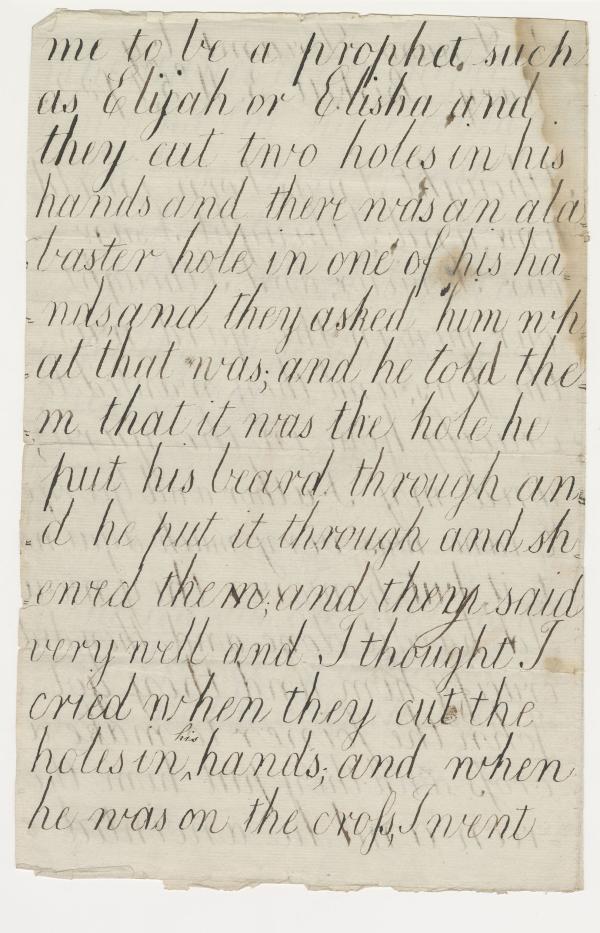 me to be a prophet, such
as Elijah or Elisha and
they cut two holes in his
hands and there was an ala=
=baster hole in one of his ha=
=nds, and they asked him wh=
=at that was; and he told the=
=m that it was the hole he
put his beard through an=
=d he put it through and sh=
=ewed them; and they said
very well and I thought I
cried when they cut the
holes in ^his hands; and when
he was on the croſs, I went